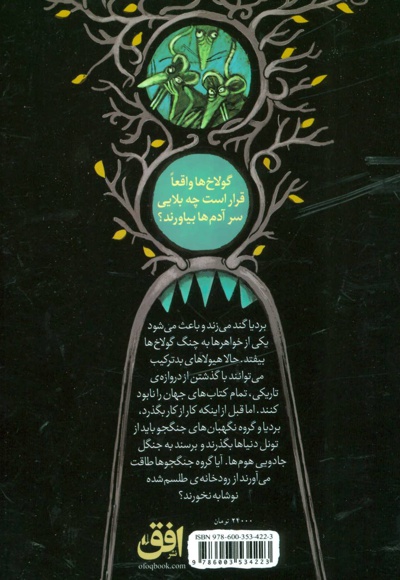 گولاخ‌ها واقعاً
قرار است چه بلایی
سر آدم‌ها بیاورند؟
بردیا گند می‌زند و باعث می‌شود
یکی از خواهرها به چنگ گولاخ‌ها
بیفتد. حالا هیولاهای بدترکیب
می‌توانند با گذشتن از دروازه‌ی
تاریکی، تمام کتاب‌های جهان را نابود
کنند. اما قبل از اینکه کار از کار بگذرد،
بردیا و گروه نگهبان‌های جنگجو باید از
تونل دنیاها بگذرند و برسند به جنگل
جادویی هوم‌ها. آیا گروه جنگجوها طاقت
می‌آورند از رودخانه‌ی طلسم‌شده
نوشابه نخورند؟
۲۲۰۰۰ تومان
ISBN 978-600-353-422-3
9 786003 534223
نشر افق
ofoqbook.com